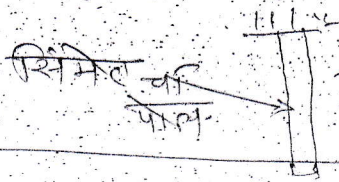 सिमेंट
चा
पोल